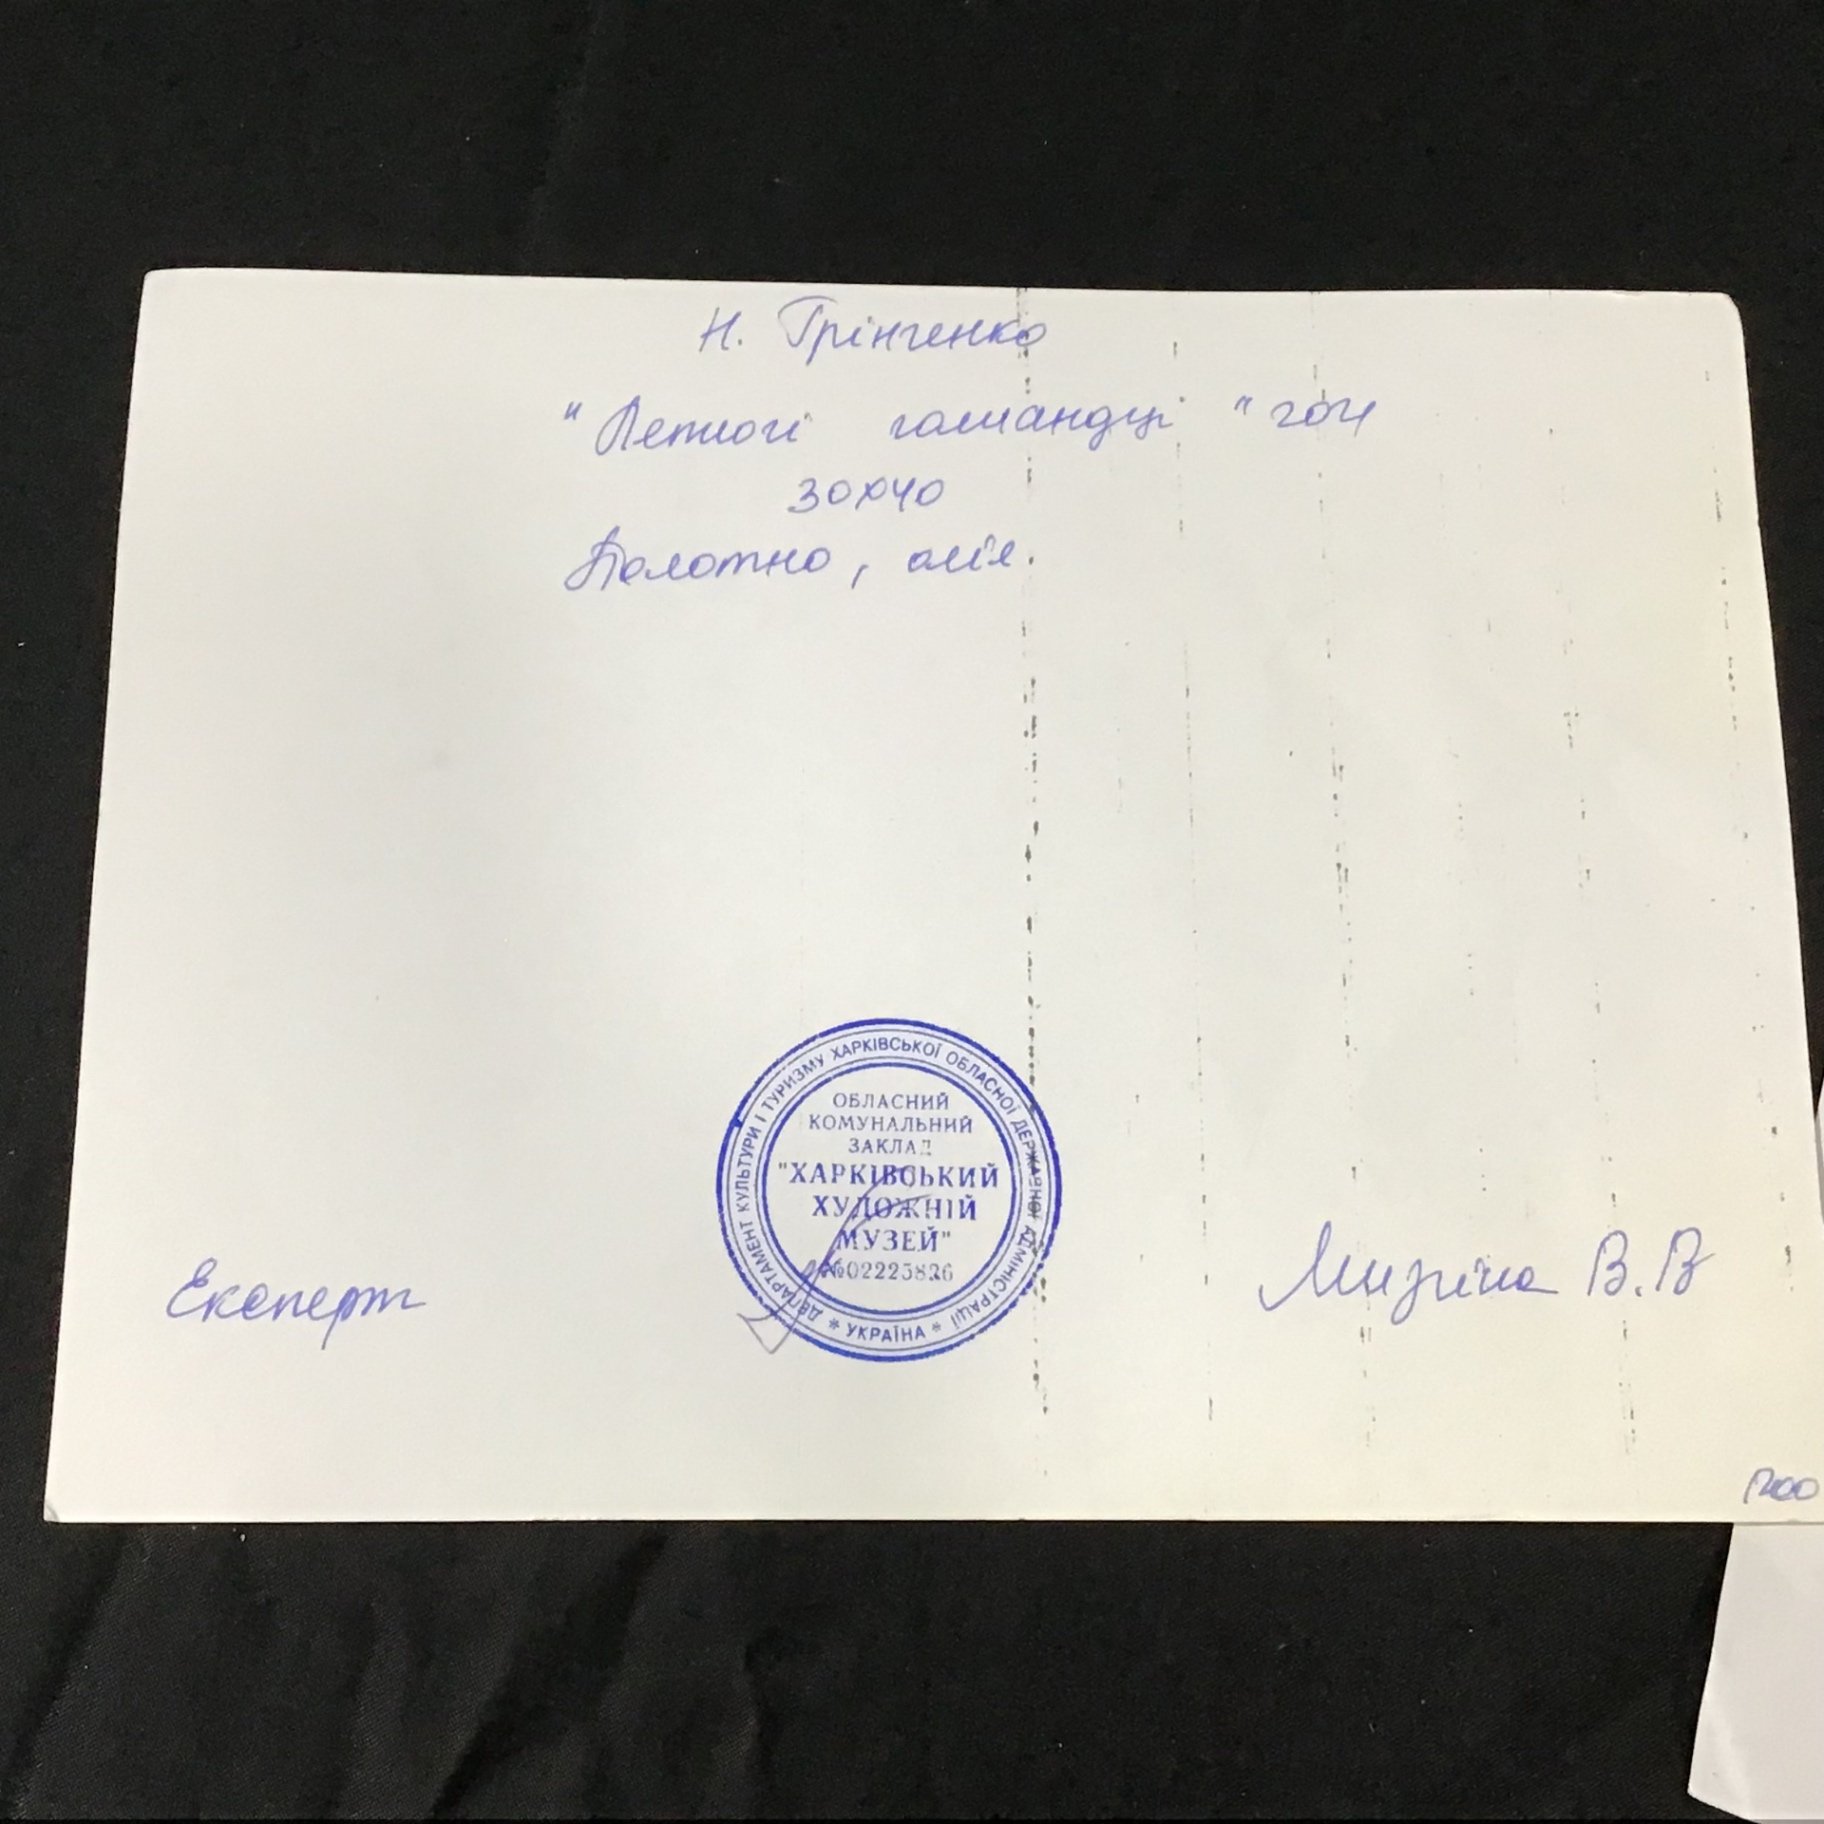 Н. Грінченко
"Летючі голландці"
30х40
Полотно, олія.
ДЕПАРТАМЕНТ КУЛЬТУРИ І ТУРИЗМУ ХАРКІВСЬКОЇ ОБЛАСНОЇ ДЕРЖАВНОЇ АДМІНІСТРАЦІЇ
* УКРАЇНА *
ОБЛАСНИЙ
КОМУНАЛЬНИЙ
ЗАКЛАД
"ХАРКІВСЬКИЙ
ХУДОЖНІЙ
МУЗЕЙ"
№02225826
Експерт
Мизгіна В.В